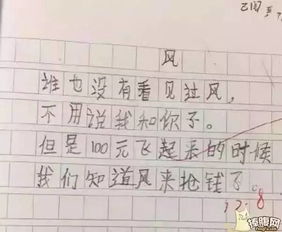 风
谁也没有看见过风，
不用说我和你了。
但是100元飞起来的时候
我们知道风来抢钱了。
12.8
捧腹网